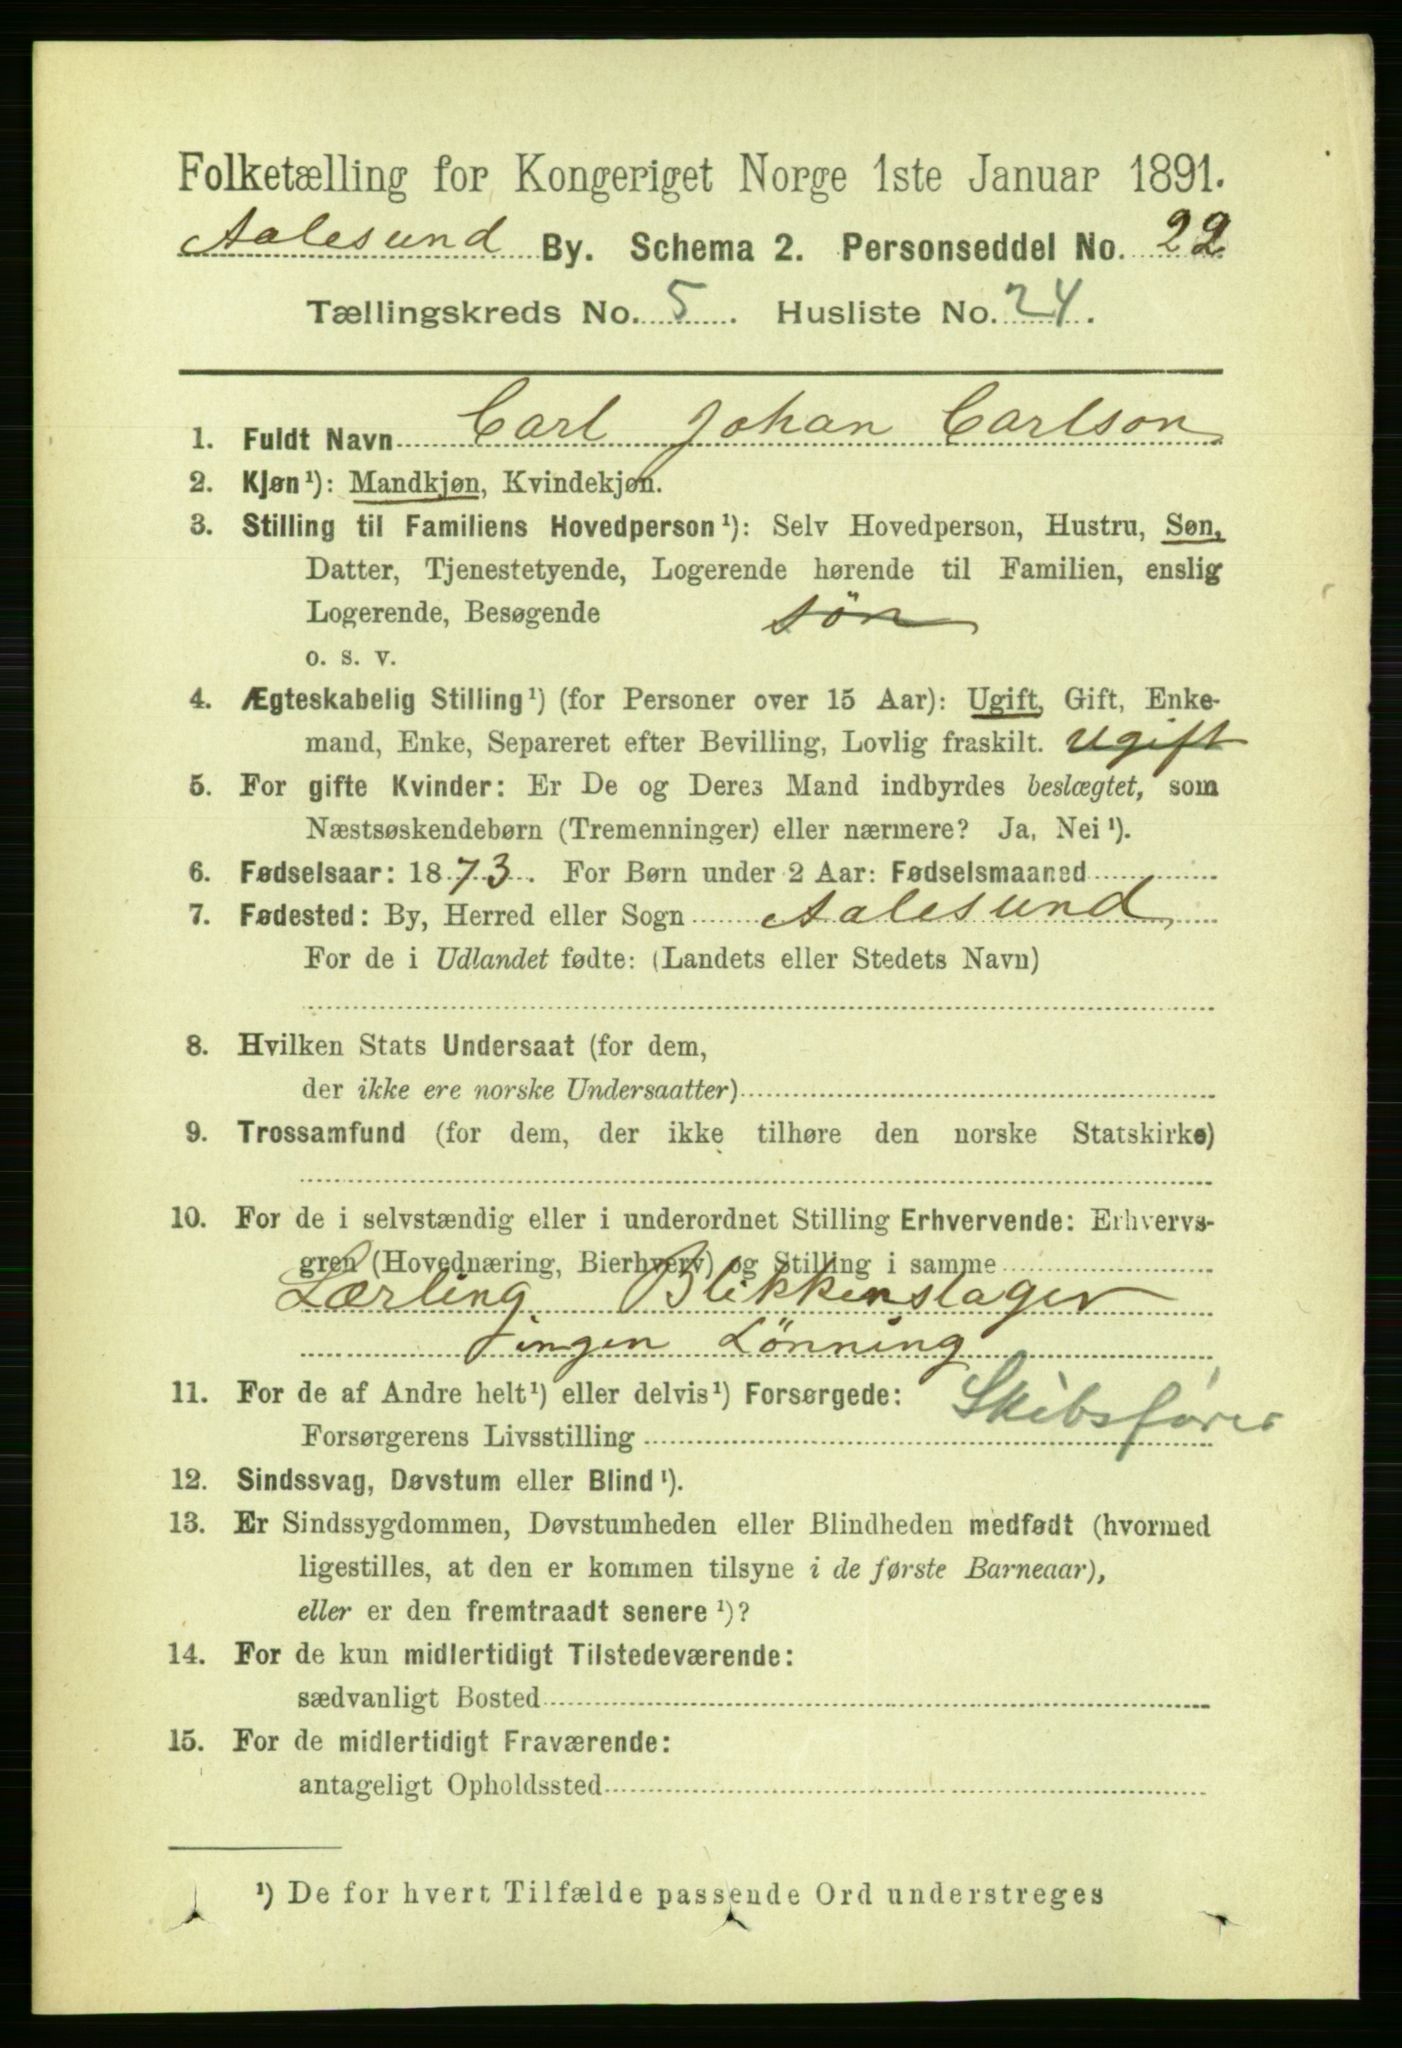 Folketælling for Kongeriget Norge 1ste Januar 1891.
Aalesund By. Schema 2. Personseddel No. 22
Tællingskreds No. 5. Husliste No. 24.
1. Fuldt Navn Carl Johan Carlson
2. Kjøn¹): Mandkjøn, Kvindekjøn.
3. Stilling til Familiens Hovedperson¹): Selv Hovedperson, Hustru, Søn,
Datter, Tjenestetyende, Logerende hørende til Familien, enslig
Logerende, Besøgende søn
o. s. v.
4. Ægteskabelig Stilling¹) (for Personer over 15 Aar): Ugift, Gift, Enke-
mand, Enke, Separeret efter Bevilling, Lovlig fraskilt. Ugift
5. For gifte Kvinder: Er De og Deres Mand indbyrdes beslægtet, som
Næstsøskendebørn (Tremenninger) eller nærmere? Ja, Nei¹).
6. Fødselsaar: 1873. For Børn under 2 Aar: Fødselsmaaned
7. Fødested: By, Herred eller Sogn Aalesund
For de i Udlandet fødte: (Landets eller Stedets Navn)
8. Hvilken Stats Undersaat (for dem,
der ikke ere norske Undersaatter)
9. Trossamfund (for dem, der ikke tilhøre den norske Statskirke)
10. For de i selvstændig eller i underordnet Stilling Erhvervende: Erhvervs-
gren (Hovednæring, Bierhverv) og Stilling i samme
Lærling Blikkenslager
ingen Lönning
11. For de af Andre helt¹) eller delvis¹) Forsørgede: Skibsfører
Forsørgerens Livsstilling
12. Sindssvag, Døvstum eller Blind¹).
13. Er Sindssygdommen, Døvstumheden eller Blindheden medfødt (hvormed
ligestilles, at den er kommen tilsyne i de første Barneaar),
eller er den fremtraadt senere¹)?
14. For de kun midlertidigt Tilstedeværende:
sædvanligt Bosted
15. For de midlertidigt Fraværende:
antageligt Opholdssted
¹) De for hvert Tilfælde passende Ord understreges